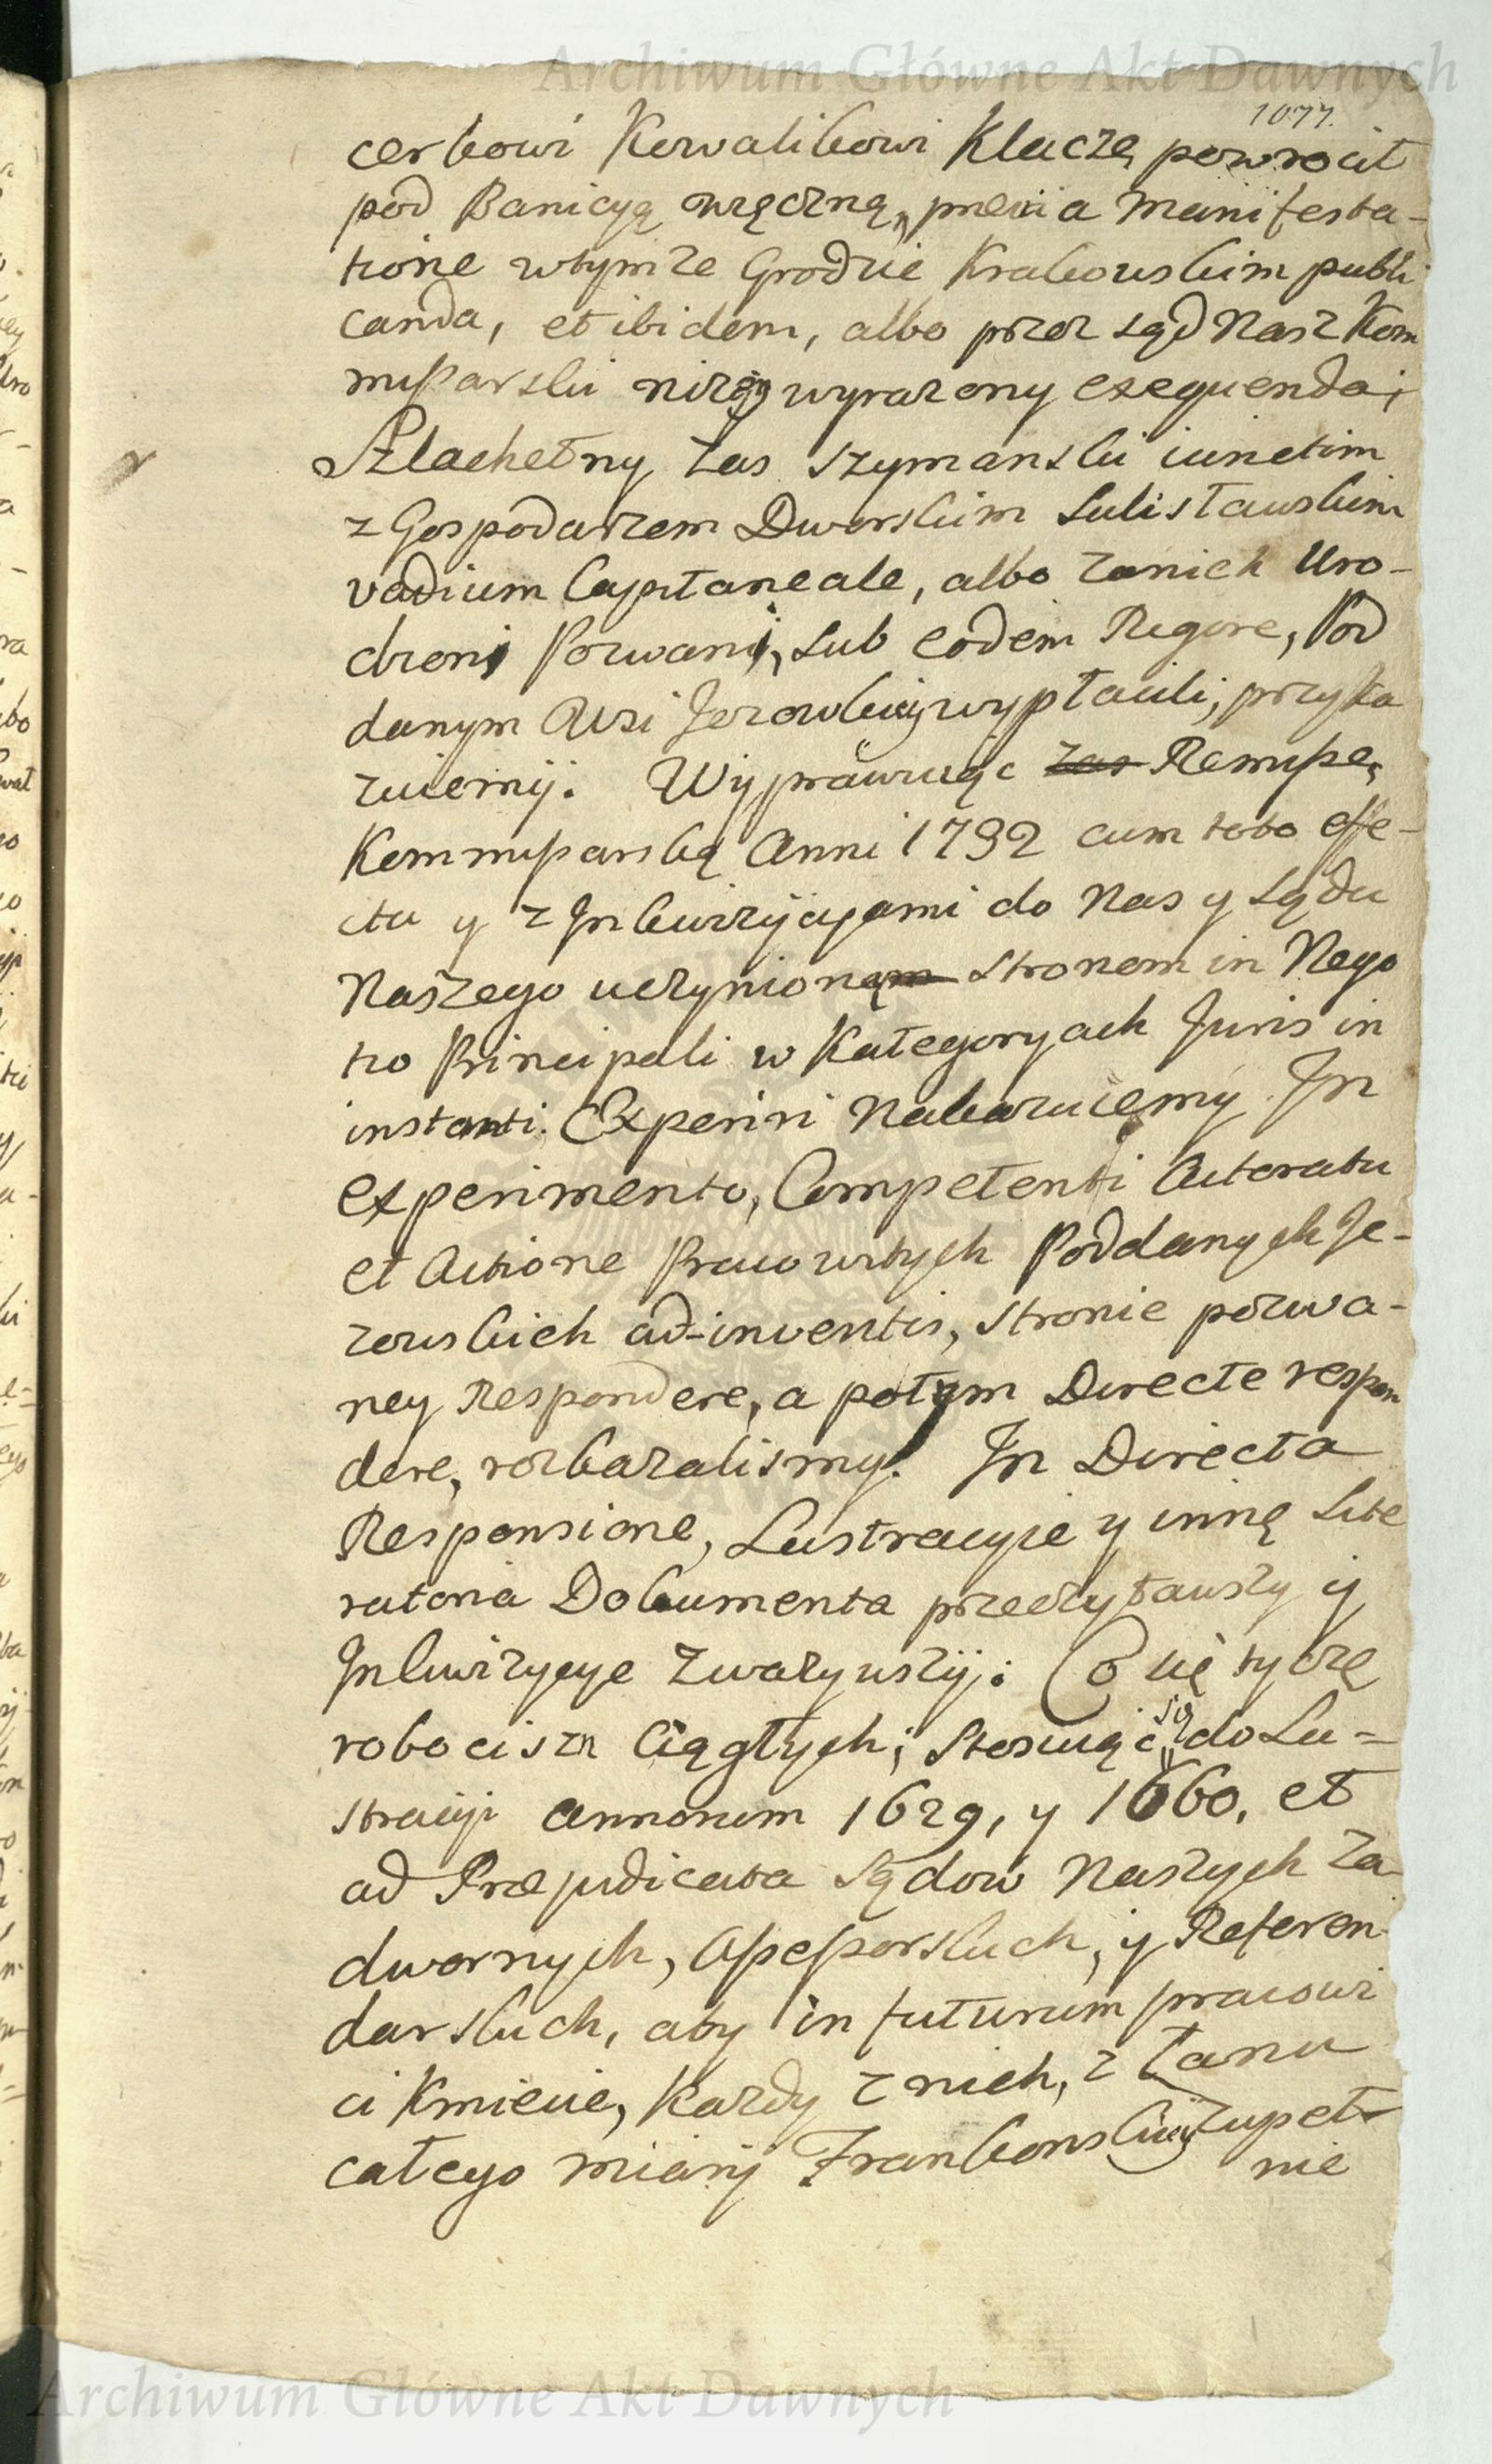 Archiwum Główne Akt Dawnych
1077.
cerkowi Kowalikowi Klaczę powrocił
pod Banicyą wręczną, prævia Manifesta-
tione wtymże Grodzie Krakowskim publi
canda, et ibidem, albo przez sąd Nasz Kom
missarski niżey wyrażony exequenda;
Szlachetny zas Szymanski iunctim
z Gospodarzem Dworskim Sulisławskim
vadium Capitaneale, albo zanich Uro-
dzeni Pozwani, sub eodem Rigore, Pod
danym Wsi Jezowskiey wypłacili, przyka
zuiemy. Wyprawuiąc zas Remissę
Kommissarską Anni 1792 cum toto effe-
ctu y z Inkwizycyami do Nas y Sądu
Naszego uczynioną Stronom in Nego
tio Principali w Kategoryach Juris in
instanti Experiri Nakazuiemy. In
experimento, Competenti Actoratu
et Actione Pracowitych Poddanych Je-
zowskich ad-inventis, Stronie pozwa-
ney Respondere, a potym Directe respon
dere, rozkazalismy. In Directa
Responsione, Lustracyie y inne Lite
ratoria Dokumenta przeczytawszy y
Inkwizycye zwazywszy: Co się tycze
robocizn Ciągłych; Stosuiąc się do Lu=
stracyi annorum 1629, y 1660. et
ad Præjudicata Sądow Naszych Za-
dwornych, Assessorskich, y Referen
darskich, aby in futurum pracowi
ci Kmiecie, Kazdy z nich, z Łanu
całego miary Frankonskiey zupeł-
nie
Archiwum Główne Akt Dawnych